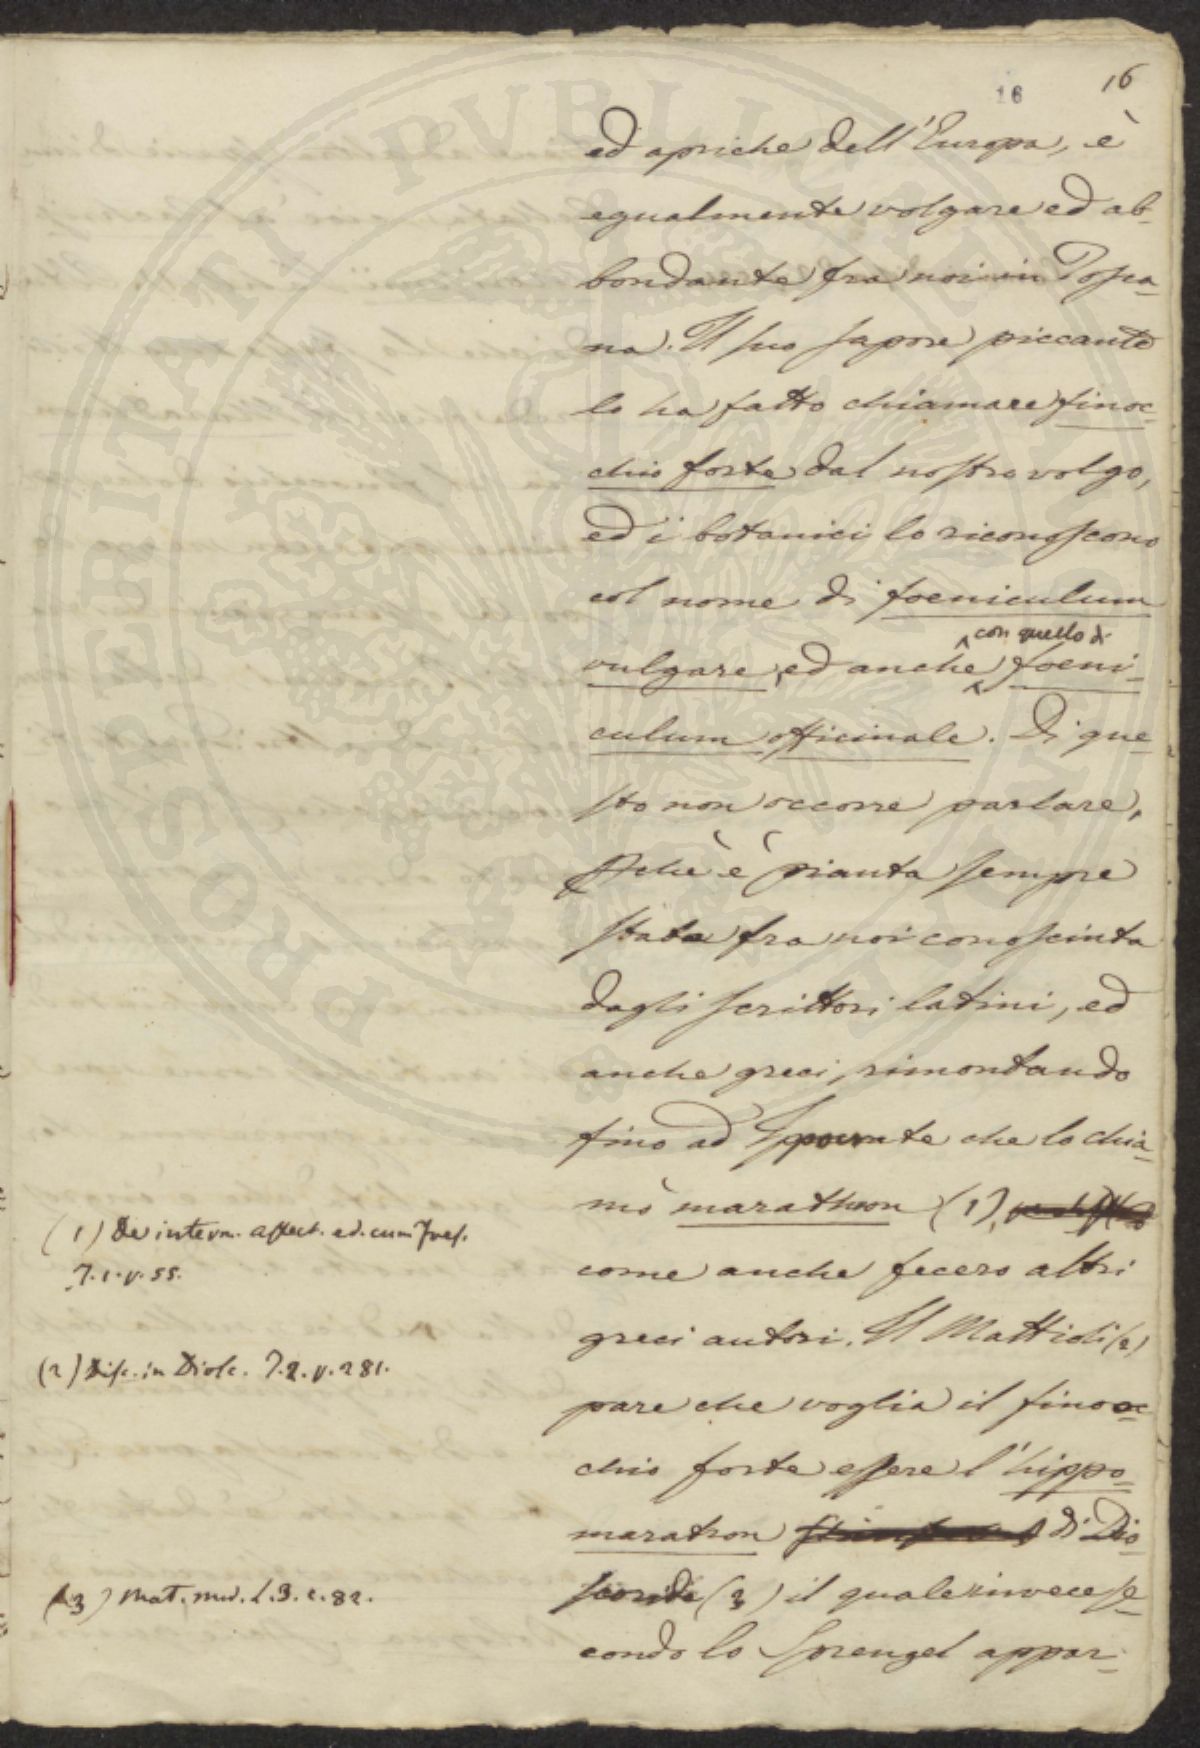 16
16
ed apriche dell'Europa, è
egualmente volgare ed ab-
bondante fra noi in Tosca-
na. Il suo sapore piccante
lo ha fatto chiamare finoc-
chio forte dal nostro volgo,
ed i botanici lo riconoscono
col nome di foeniculum
con quello di
vulgare, ed anche foeni-
culum officinale. Di que-
sto non occorre parlare,
perchè è pianta sempre
stata fra noi conosciuta
dagli scrittori latini, ed
anche greci, rimontando
fino ad Ippocrate che lo chia-
mò marathron (1),
come anche fecero altri
greci autori. Il Mattioli (2)
pare che voglia il finoc-
chio forte essere l'hippo-
marathron di Dio-
scoride (3) il quale invece se-
condo lo Sprengel appar-
(1) De intern. affect. ed. cum Foes.
T. 1. p. 55.
(2) Disc. in Diosc. T. 2. p. 281.
(3) Mat. med. l. 3. c. 82.
PROSPERITATI PVBLICAE AVGENDAE